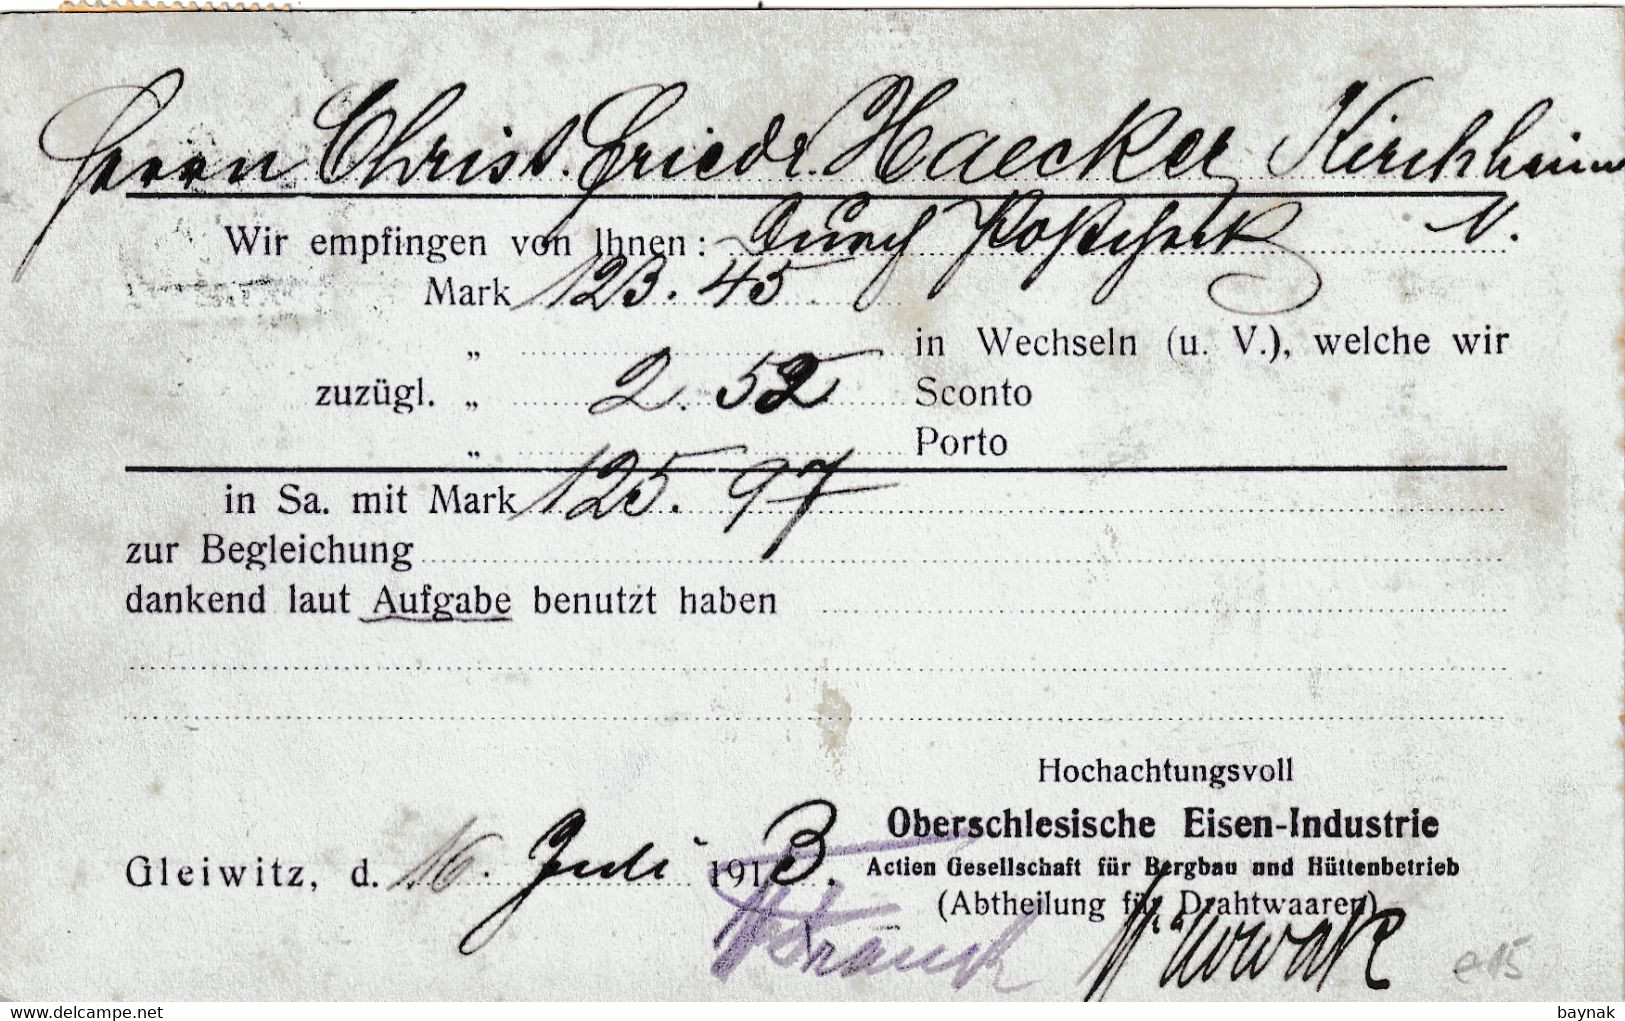 Herrn Christ. Friedr. Haecker, Kirchheim
Wir empfingen von Ihnen: durch Postscheck N.
Mark 123.45
„ in Wechseln (u. V.), welche wir
zuzügl. „ 2.52 Sconto
„ Porto
in Sa. mit Mark 125.97
zur Begleichung
dankend laut Aufgabe benutzt haben
Hochachtungsvoll
Oberschlesische Eisen-Industrie
Gleiwitz, d. 16. Juli 1913. Actien Gesellschaft für Bergbau und Hüttenbetrieb
(Abtheilung für Drahtwaaren)
Nowak
e15
baynak